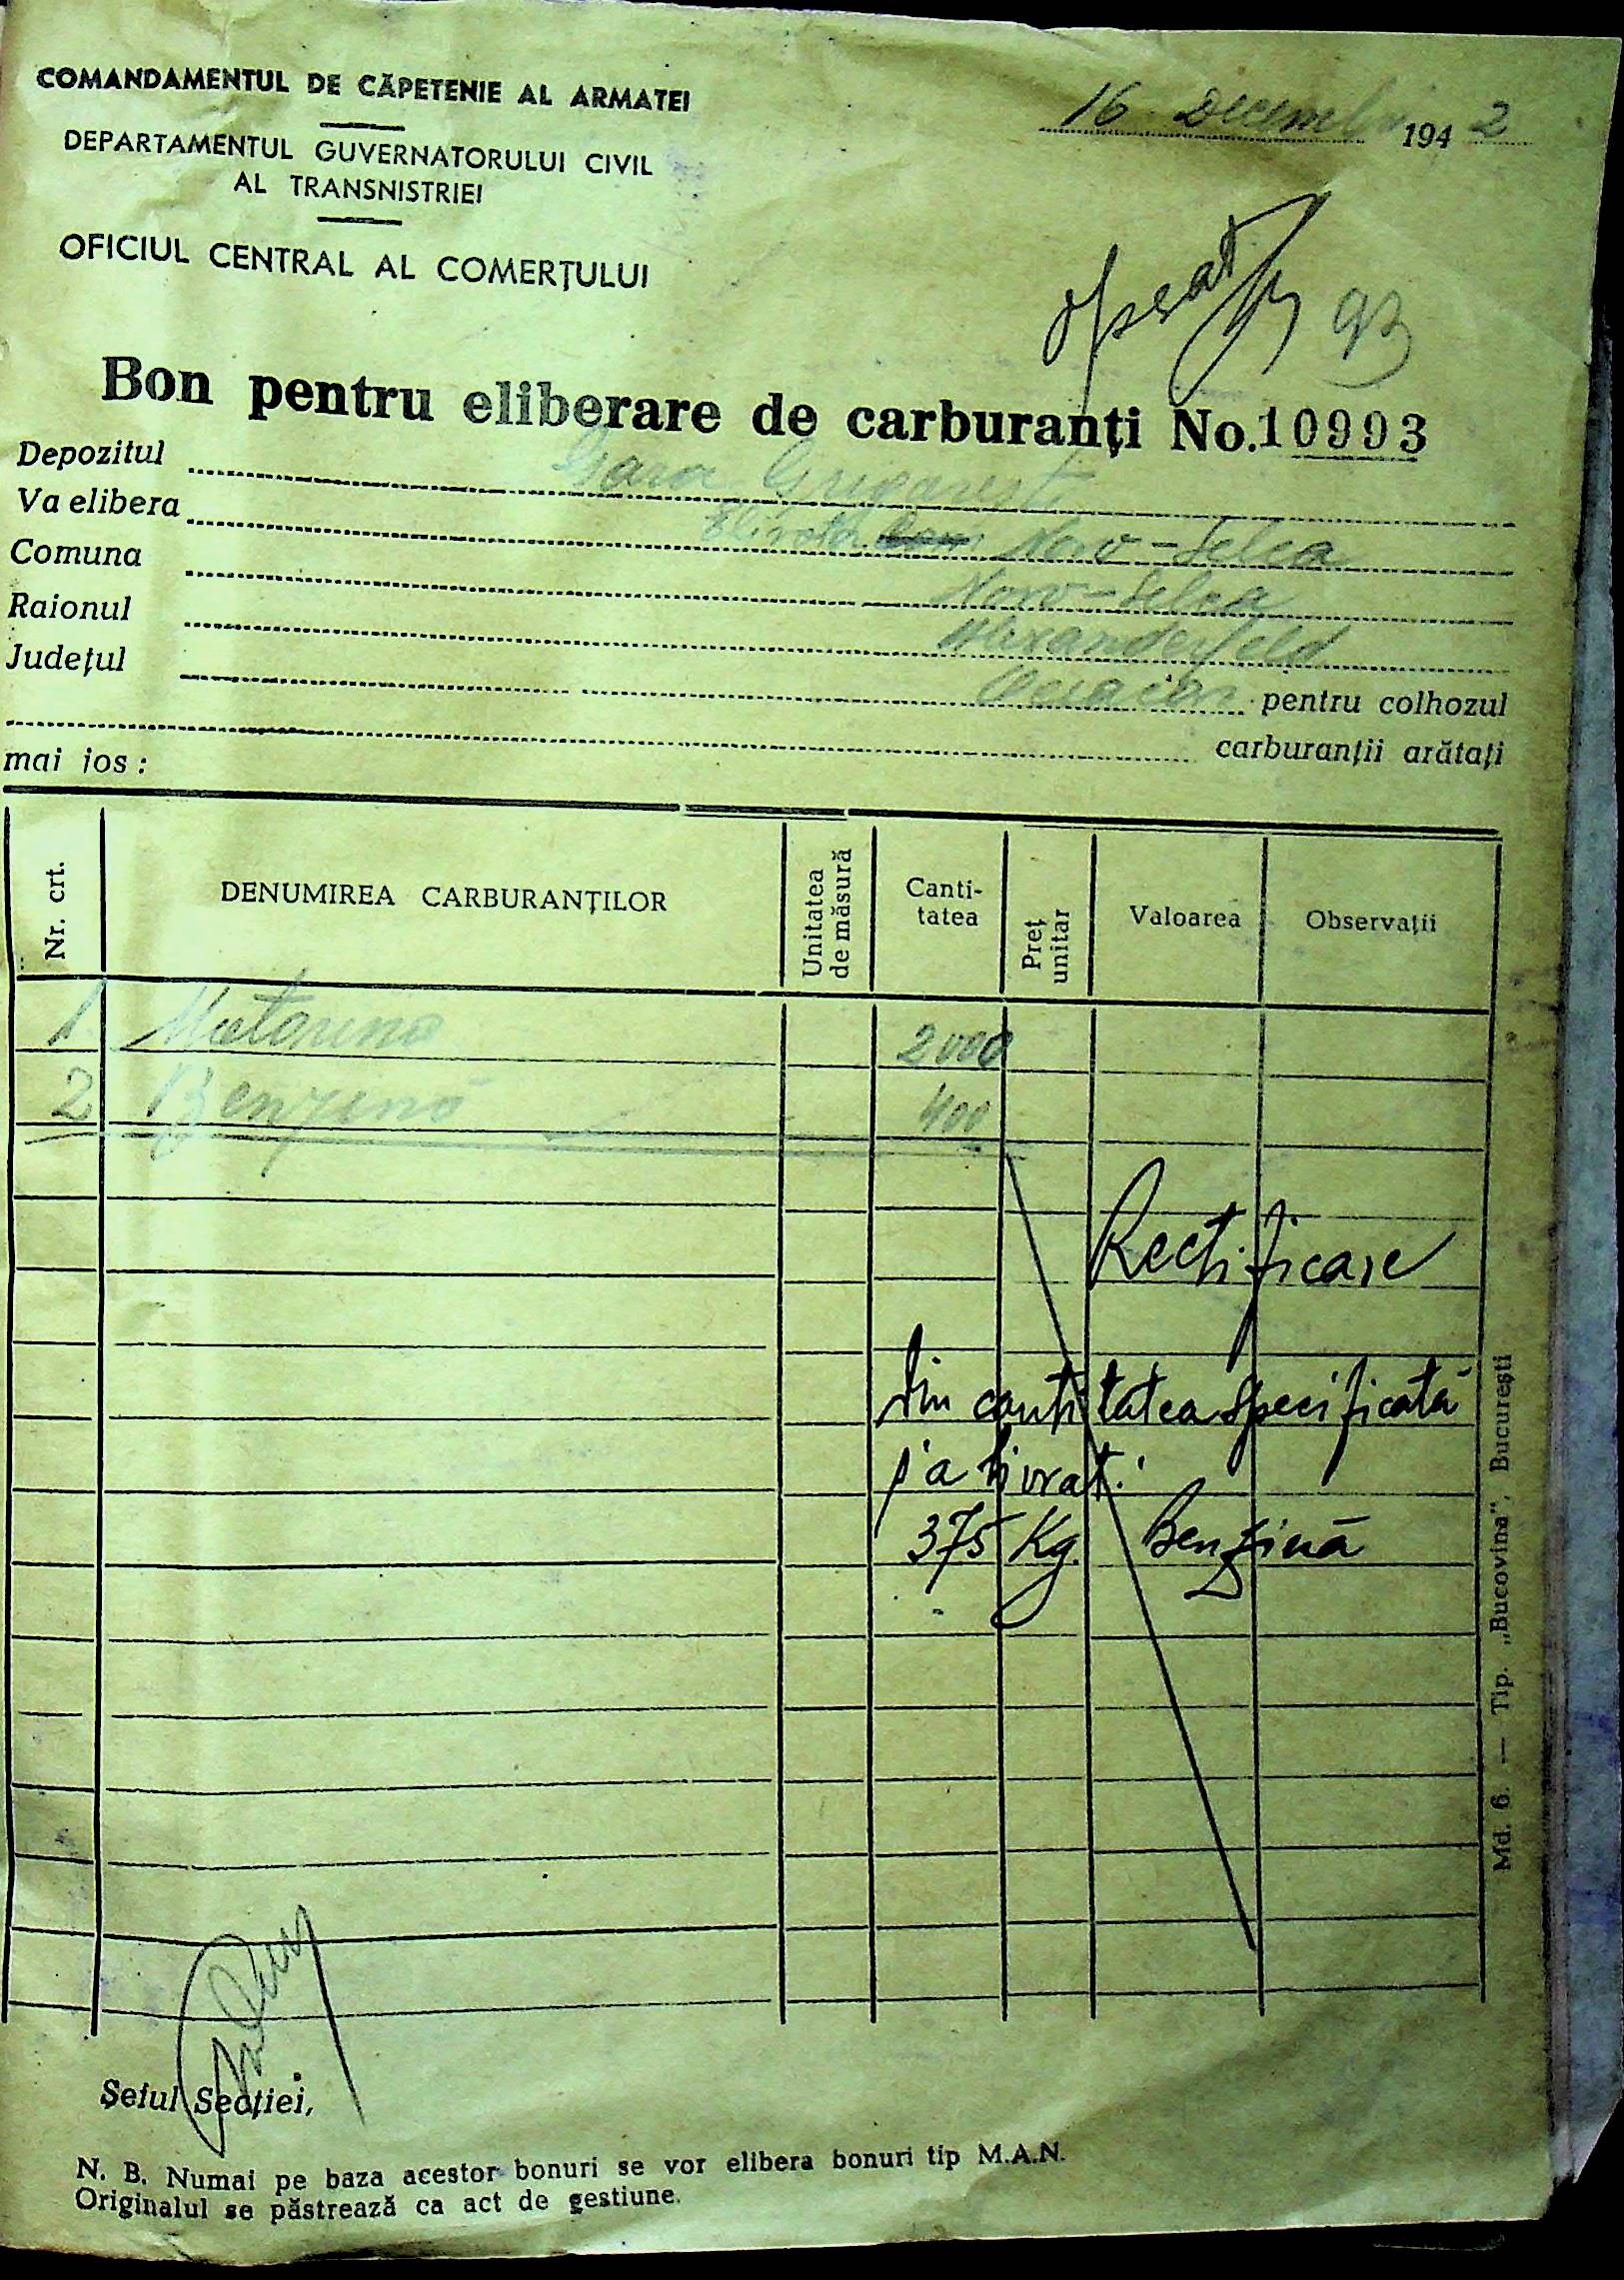 COMANDAMENTUL DE CĂPETENIE AL ARMATEI
DEPARTAMENTUL GUVERNATORULUI CIVIL
AL TRANSNISTRIEI
OFICIUL CENTRAL AL COMERȚULUI
16 Decembrie 1942
Operat
93
Bon pentru eliberare de carburanți No. 10993
Depozitul Gara Grigorești
Va elibera Novo-Selca
Comuna Novo-Selca
Raionul Alexanderfeld
Județul pentru colhozul
carburanții arătați
mai jos:
Nr. crt. DENUMIREA CARBURANȚILOR Unitatea de măsură Canti-tatea Preț unitar Valoarea Observații
1 Motorina 2000
2 Benzină 400
Rectificare
din cantitatea specificată
s'a livrat:
375 Kg. Benzină
Md. 6. — Tip. „Bucovina", București
Șeful Secției,
N. B. Numai pe baza acestor bonuri se vor elibera bonuri tip M.A.N.
Originalul se păstrează ca act de gestiune.